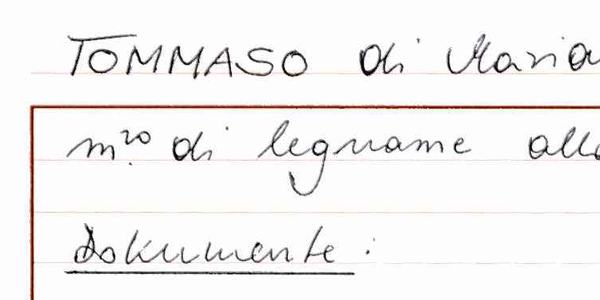 TOMMASO di Maria
m.ro di legname alla
Dokumente: